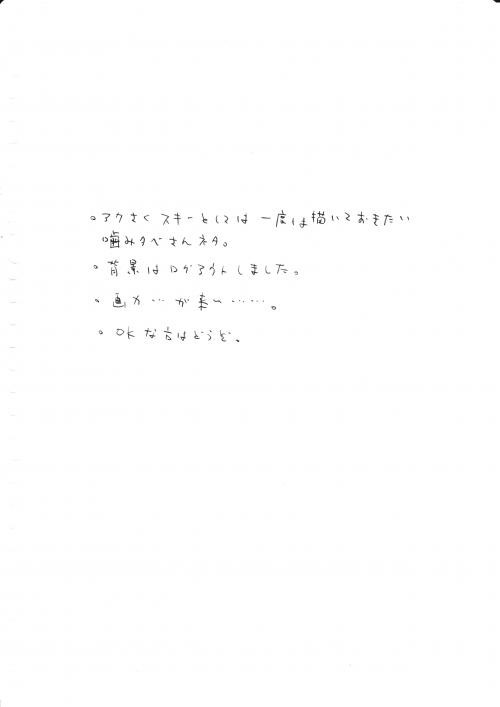 。アクさくスキーとしては一度は描いておきたい
噛みタベさんネタ。
。背景はログアウトしました。
。画力…が来い……。
。OKな方はどうぞ。